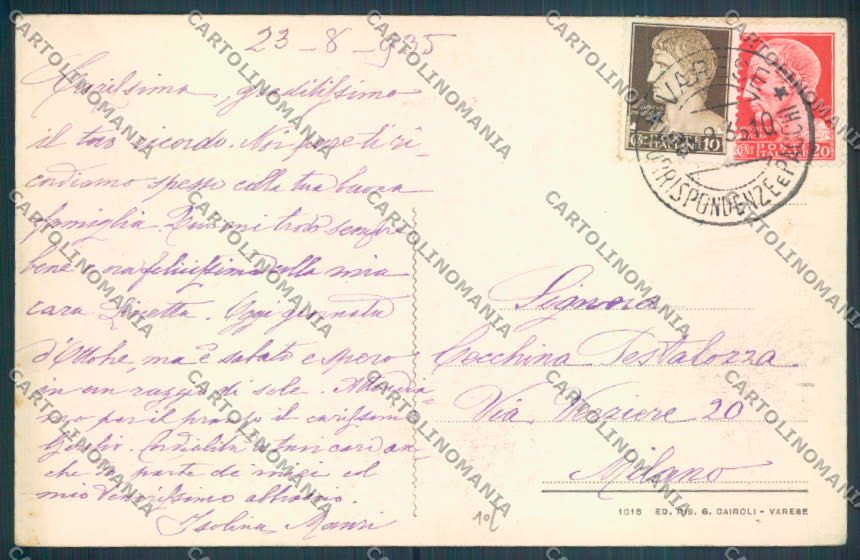 23-8-935
Carissima, graditissimo
il tuo ricordo. Noi pure ti ri-
cordiamo spesso colla tua buona
famiglia. Qui mi trovo sempre
bene e ora felicissima colla mia
cara Linetta. Oggi giornata
d'Ottobre, ma è sabato e spero
in un raggio di sole. Attendia-
mo per il pranzo il carissimo
Giulio. Cordialità ai tuoi cari an-
che da parte dei miei ed
mio abbraccio.
Isolina Mauri
CENT POSTE ITALIANE 10
CENT POSTE ITALIANE 20
VARESE
CORRISPONDENZE E PACCHI
Signora
Cecchina Testalozza
Via Verziere 20
Milano
1016 ED. RIS. G. CAIROLI - VARESE
CARTOLINOMANIA